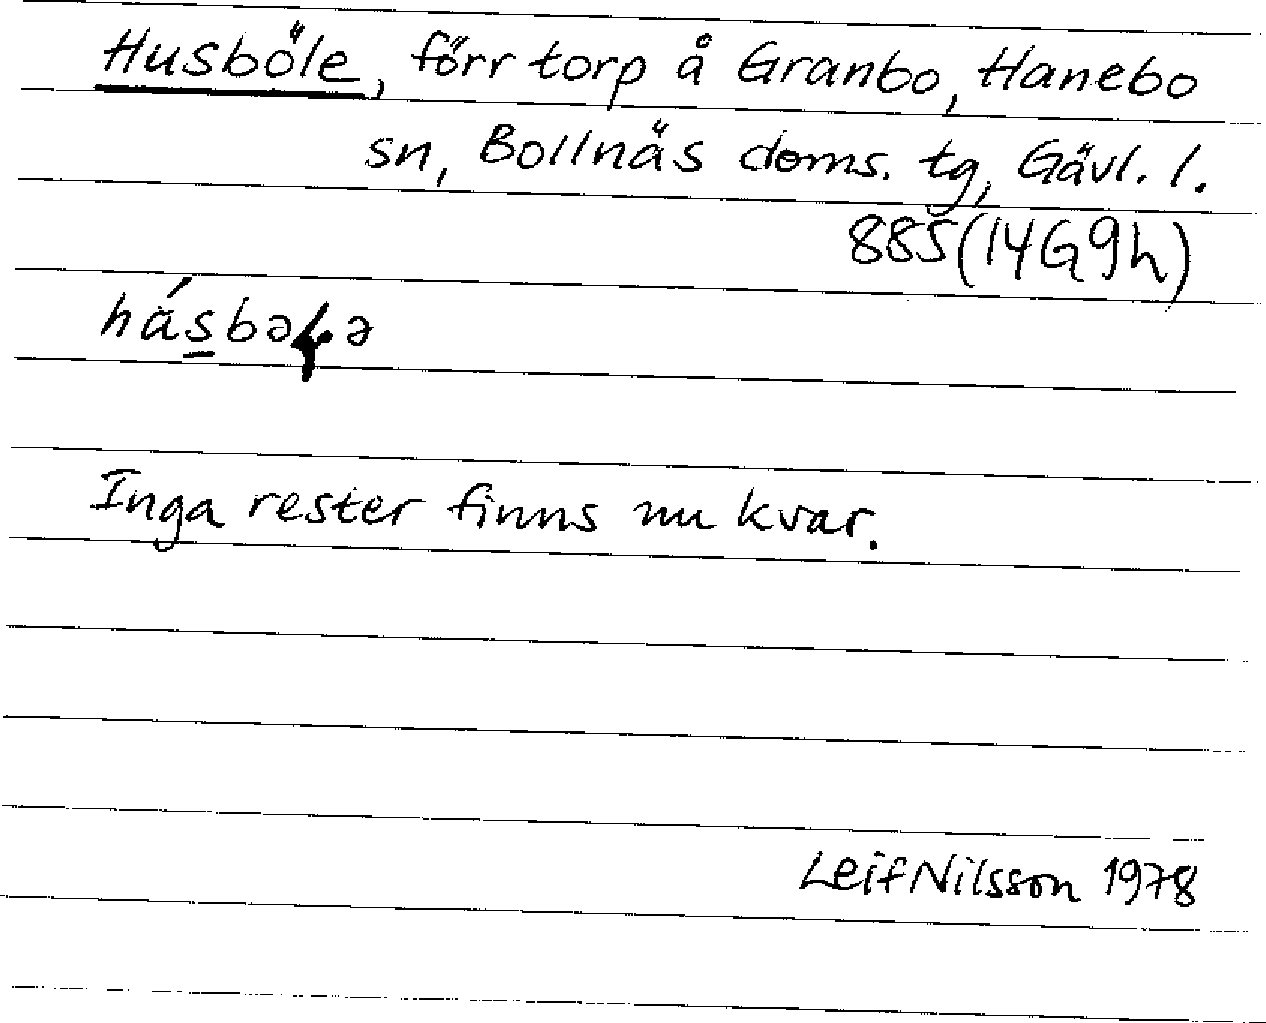 Husböle, förr torp å Granbo, Hanebo
sn, Bollnäs doms. tg, Gävl. l.
885(14G9h)
Inga rester finns nu kvar.
Leif Nilsson 1978